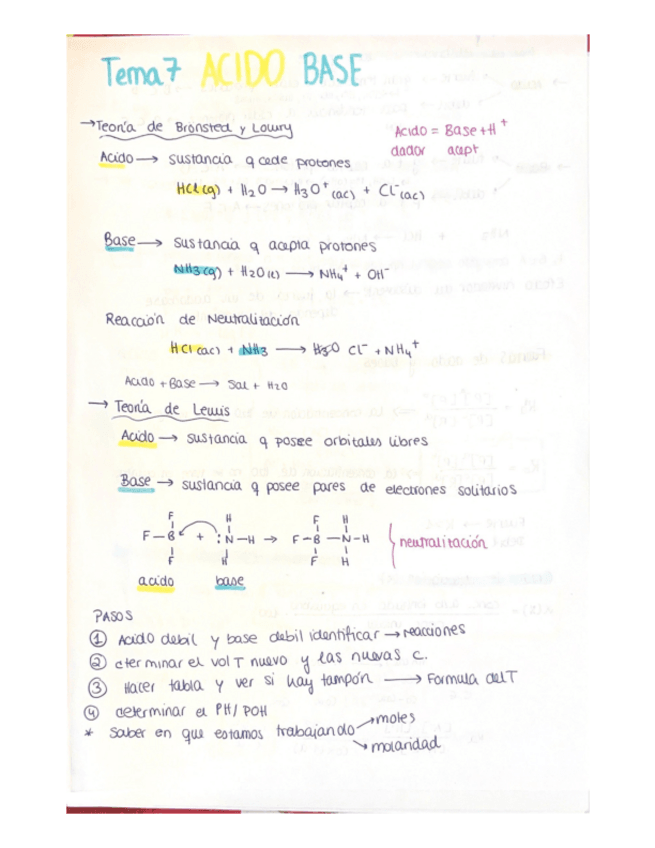 Tema 7 ACIDO BASE
→Teoría de Brönsted y Lowry
Acido = Base + H⁺
dador acept
Acido → sustancia q cede protones
HCl (g) + H₂O → H₃O⁺ (ac) + Cl⁻ (ac)
Base → sustancia q acepta protones
NH₃ (g) + H₂O (l) → NH₄⁺ + OH⁻
Reacción de Neutralitación
HCl (ac) + NH₃ → H₃O Cl⁻ + NH₄⁺
Acido + Base → Sal + H₂O
→ Teoría de Lewis
Acido → sustancia q posee orbitales libres
Base → sustancia q posee pares de electrones solitarios
F H F H
F – B + : N – H → F – B – N – H
F H F H
neutralitación
acido base
PASOS
① Acido debil y base debil identificar → reacciones
② eterminar el vol T nuevo y las nuevas c.
③ Hacer tabla y ver si hay tampón → Formula del T
④ determinar el PH/POH
* Saber en que estamos trabajando → moles
→ molaridad